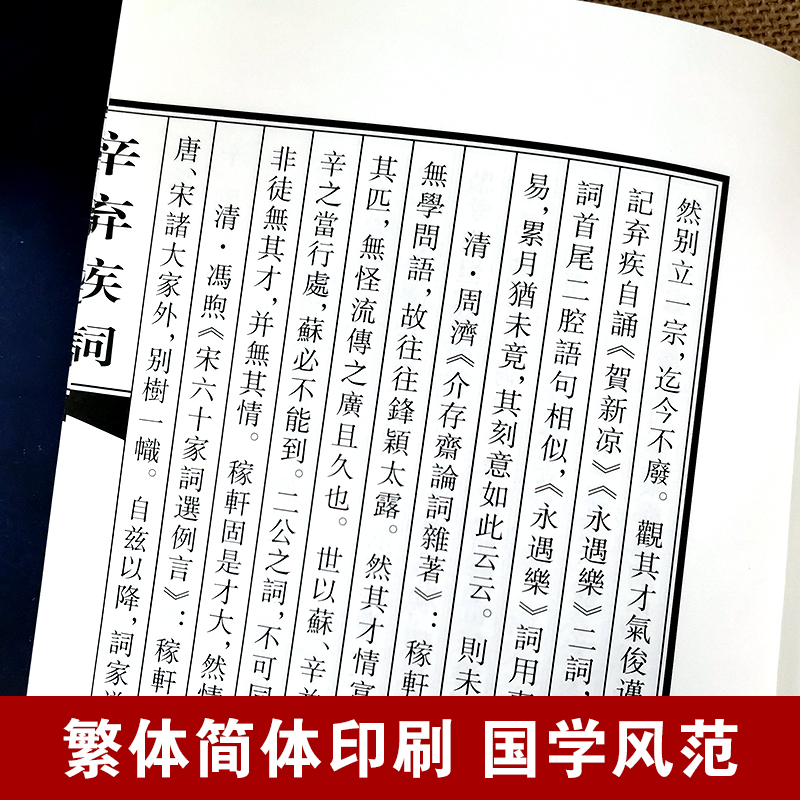 然别立一宗，迄今不廢。觀其才氣俊邁
記弃疾自誦《賀新凉》《永遇樂》二詞，
詞首尾二腔語句相似，《永遇樂》詞用
易，累月猶未竟，其刻意如此云云。則未
清·周濟《介存齋論詞雜著》：稼軒
無學問語，故往往鋒穎太露。然其才情富
其匹，無怪流傳之廣且久也。世以蘇、辛
辛之當行處，蘇必不能到。二公之詞，不可同
非徒無其才，并無其情。稼軒固是才大，然情
清·馮煦《宋六十家詞選例言》：稼軒
唐、宋諸大家外，别樹一幟。自兹以降，詞家
辛弃疾詞
繁体简体印刷 国学风范